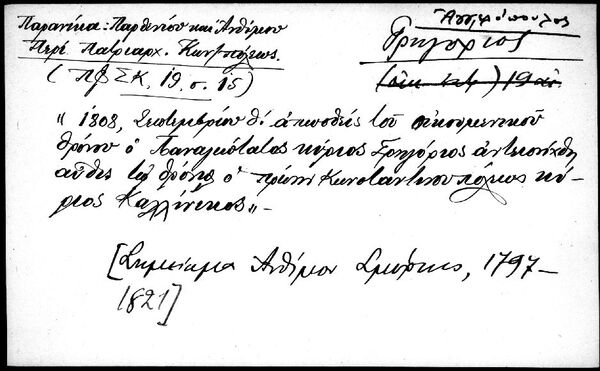 Παρανίκα: Παρθενίου και Ανθίμου
Περί Πατριαρχ. Κων/πόλεως.
(ΠΦΣΚ, 19. σ. 15)
Γρηγόριος
19 αι
" 1808, Σεπτεμβρίου θί. απωσθείς του οικουμενικού
θρόνου ο Παναγιώτατος κύριος Γρηγόριος αντεισήχθη
αύθις τω θρόνω ο πρώην Κωνσταντινουπόλεως κύ-
ριος Καλλίνικος" -
[Σημείωμα Ανθίμου Σμύρνης, 1797-
1821]